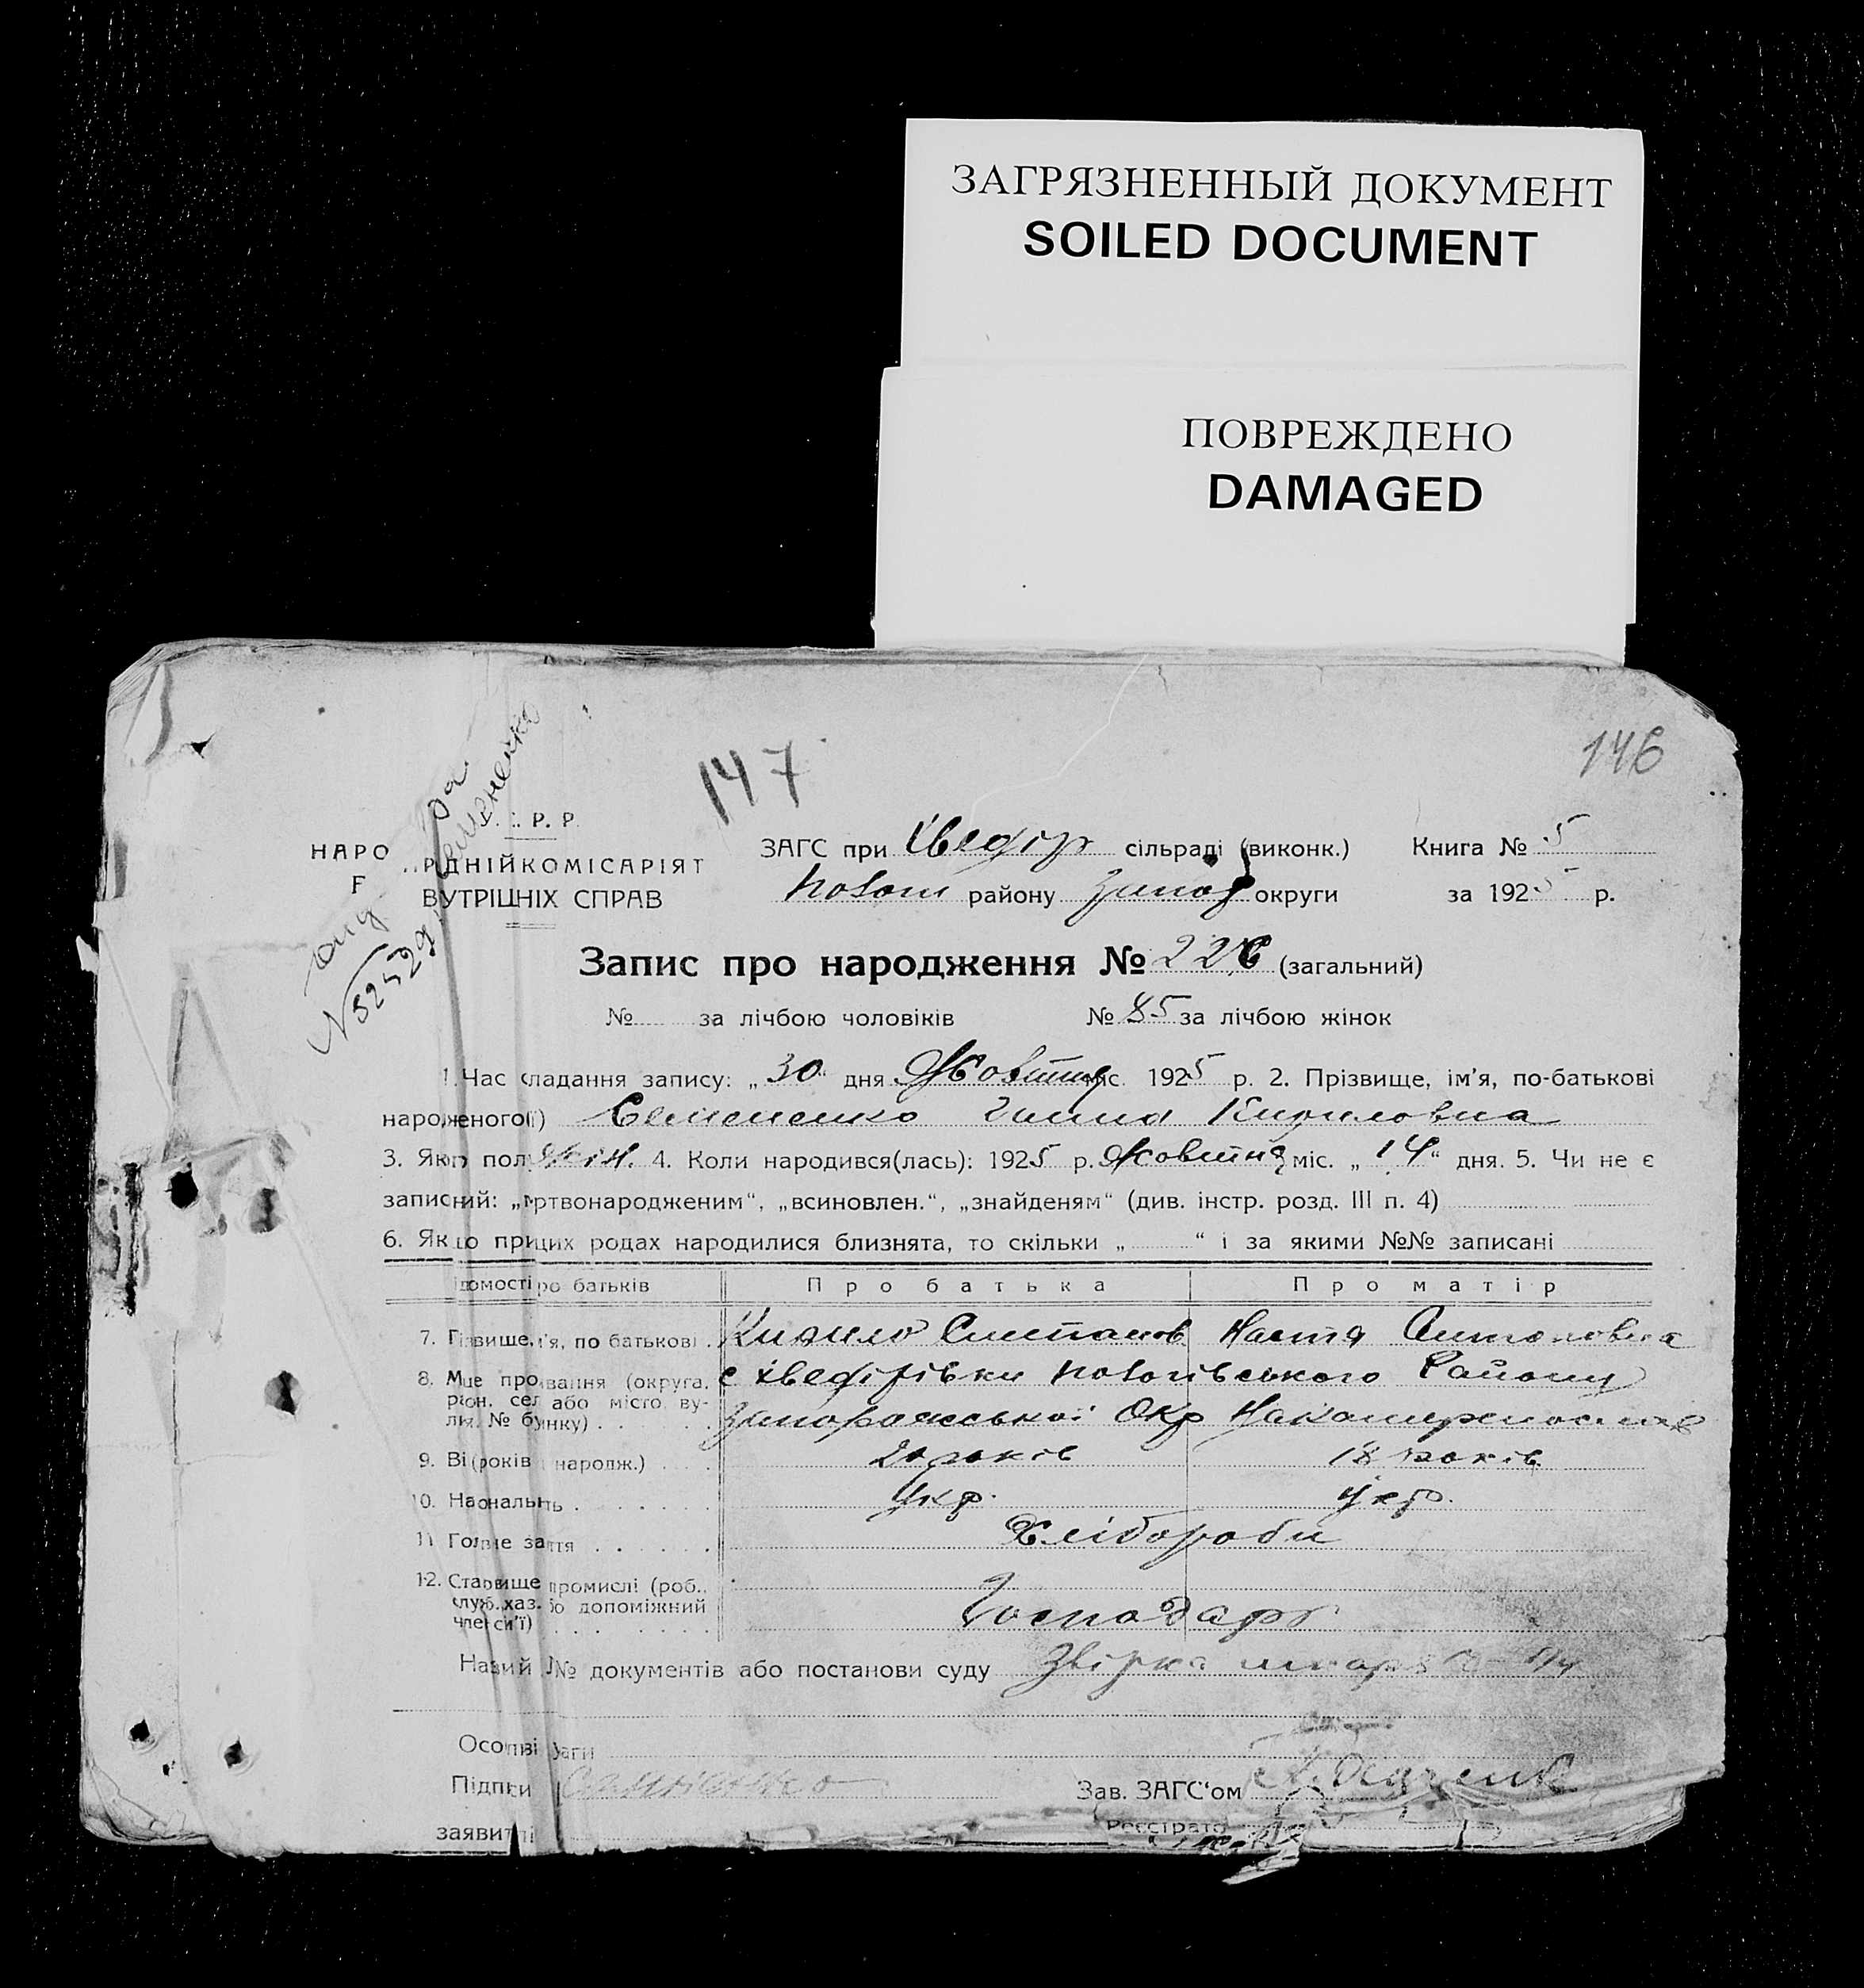 ЗАГРЯЗНЕННЫЙ ДОКУМЕНТ
SOILED DOCUMENT
ПОВРЕЖДЕНО
DAMAGED
147
146
У. . Р. Р.
НАРО РДНІЙКОМІСАРІЯТ
ВУТРІШНІХ СПРАВ
N 52529
ЗАГС при Хведір сільраді (виконк.) Книга № 5
район району Запор округи за 1925 р.
Запис про народження № 226 (загальний)
№ за лічбою чоловіків № 85 за лічбою жінок
1. Час складання запису: „30“ дня Жовтня міс. 1925 р. 2. Прізвище, ім’я, по-батькові
народженого(ї) Семененко Ганна Кириловна
3. Якого полу жін. 4. Коли народився(лась): 1925 р. Жовтня міс. „14“ дня. 5. Чи не є
записний: „мртвонародженим“, „всиновлен.“, „знайденям“ (див. інстр. розд. III п. 4)
6. Якщо при цих родах народилися близнята, то скільки „ “ і за якими №№ записані
домості про батьків Про батька Про матір
7. Прізвище, ім’я, по батькові Кирило Степанов Настя Антоновна
8. Місце проживання (округа, район, село або місто, вулиця, № будинку) с Хведірівки Району
Запорожської Окр
9. Вік (років народж.) 20 років 18 років
10. Національність укр. укр.
11 Головне заняття Хлібороби
12. Становище в промислі (роб., служ., хаз. або допоміжний член сім’ї) Господарь
Назва й № документів або постанови суду
Особливі уваги
Підписи Семененко Зав. ЗАГС“ом
заявителі Реєстратор